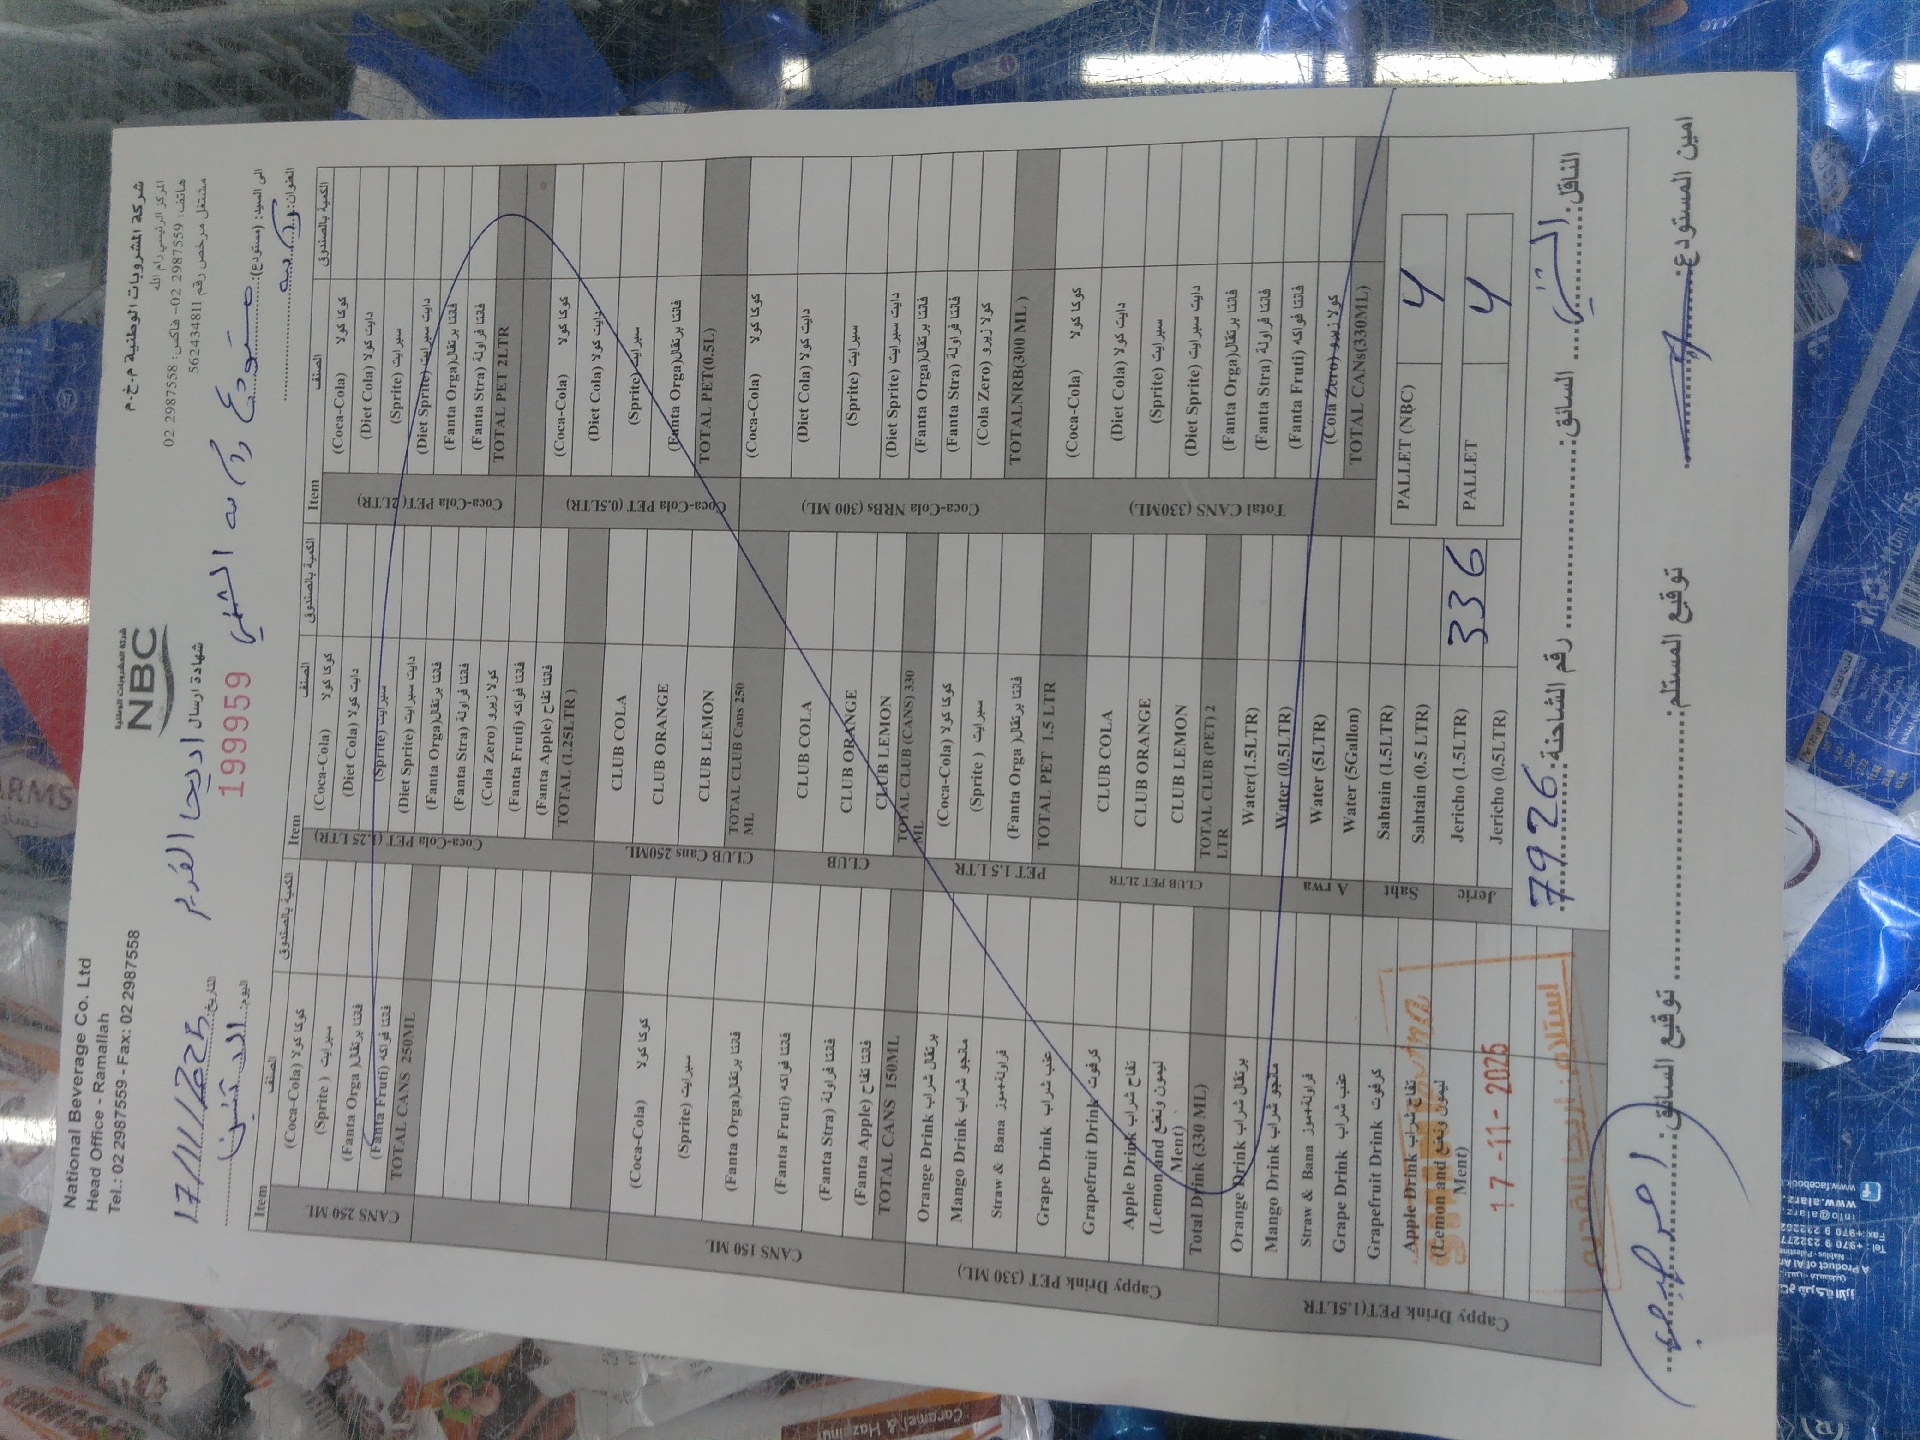 National Beverage Co. Ltd
Head Office - Ramallah
Tel.: 02 2987559 - Fax: 02 2987558
شركة المشروبات الوطنية
NBC
شركة المشروبات الوطنية م.خ.م
المركز الرئيسي رام الله
هاتف: 2987559 02- فاكس: 2987558 02
مشتغل مرخص رقم 562434811
شهادة ارسال اريحا القديم
199959
التاريخ: 17/11/2025
اليوم: الاثنين
الى السيد: (مستودع): مستودع رام الله
العنوان:
Item الصنف الكمية بالصندوق
CANS 250 ML
(Coca-Cola) كوكا كولا
(Sprite) سبرايت
(Fanta Orga) فانتا برتقال
(Fanta Fruti) فانتا فواكه
TOTAL CANS 250ML
CANS 150 ML
(Coca-Cola) كوكا كولا
(Sprite) سبرايت
(Fanta Orga) فانتا برتقال
(Fanta Fruti) فانتا فواكه
(Fanta Stra) فانتا فراولة
(Fanta Apple) فانتا تفاح
TOTAL CANS 150ML
Cappy Drink PET (330 ML)
Orange Drink برتقال شراب
Mango Drink مانجو شراب
Straw & Bana فراولة+موز
Grape Drink عنب شراب
Grapefruit Drink كرفوت
Apple Drink تفاح شراب
(Lemon and Ment) ليمون ونعنع
Total Drink (330 ML)
Cappy Drink PET(1.5LTR
Orange Drink برتقال شراب
Mango Drink مانجو شراب
Straw & Bana فراولة+موز
Grape Drink عنب شراب
Grapefruit Drink كرفوت
Apple Drink تفاح شراب
(Lemon and Ment) ليمون ونعنع
17-11-2025
Item الصنف الكمية بالصندوق
Coca-Cola PET (1.25 LTR)
(Coca-Cola) كوكا كولا
(Diet Cola) دايت كولا
(Sprite) سبرايت
(Diet Sprite) دايت سبرايت
(Fanta Orga) فانتا برتقال
(Fanta Stra) فانتا فراولة
(Cola Zero) كولا زيرو
(Fanta Fruti) فانتا فواكه
(Fanta Apple) فانتا تفاح
TOTAL (1.25LTR)
CLUB Cans 250ML
CLUB COLA
CLUB ORANGE
CLUB LEMON
TOTAL CLUB Cans 250 ML
CLUB
CLUB COLA
CLUB ORANGE
CLUB LEMON
TOTAL CLUB (CANS) 330 ML
PET 1.5 LTR
(Coca-Cola) كوكا كولا
(Sprite) سبرايت
(Fanta Orga) فانتا برتقال
TOTAL PET 1.5 LTR
CLUB PET 2LTR
CLUB COLA
CLUB ORANGE
CLUB LEMON
TOTAL CLUB (PET) 2 LTR
A rwa
Water(1.5LTR)
Water (0.5LTR)
Water (5LTR)
Water (5Gallon)
Saht
Sahtain (1.5LTR)
Sahtain (0.5 LTR)
Jeric
Jericho (1.5LTR) 336
Jericho (0.5LTR)
Item الصنف الكمية بالصندوق
Coca-Cola PET (2LTR)
(Coca-Cola) كوكا كولا
(Diet Cola) دايت كولا
(Sprite) سبرايت
(Diet Sprite) دايت سبرايت
(Fanta Orga) فانتا برتقال
(Fanta Stra) فانتا فراولة
TOTAL PET 2LTR
Coca-Cola PET (0.5LTR)
(Coca-Cola) كوكا كولا
(Diet Cola) دايت كولا
(Sprite) سبرايت
(Fanta Orga) فانتا برتقال
TOTAL PET(0.5L)
Coca-Cola NRBs (300 ML)
(Coca-Cola) كوكا كولا
(Diet Cola) دايت كولا
(Sprite) سبرايت
(Diet Sprite) دايت سبرايت
(Fanta Orga) فانتا برتقال
(Fanta Stra) فانتا فراولة
(Cola Zero) كولا زيرو
TOTALNRB(300 ML)
Total CANS (330ML)
(Coca-Cola) كوكا كولا
(Diet Cola) دايت كولا
(Sprite) سبرايت
(Diet Sprite) دايت سبرايت
(Fanta Orga) فانتا برتقال
(Fanta Stra) فانتا فراولة
(Fanta Fruti) فانتا فواكه
(Cola Zero) كولا زيرو
TOTAL CANs(330ML)
PALLET (NBC) 4
PALLET 4
الناقل: السائق: رقم الشاحنة: 7926
امين المستودع: توقيع المستلم: توقيع السائق: